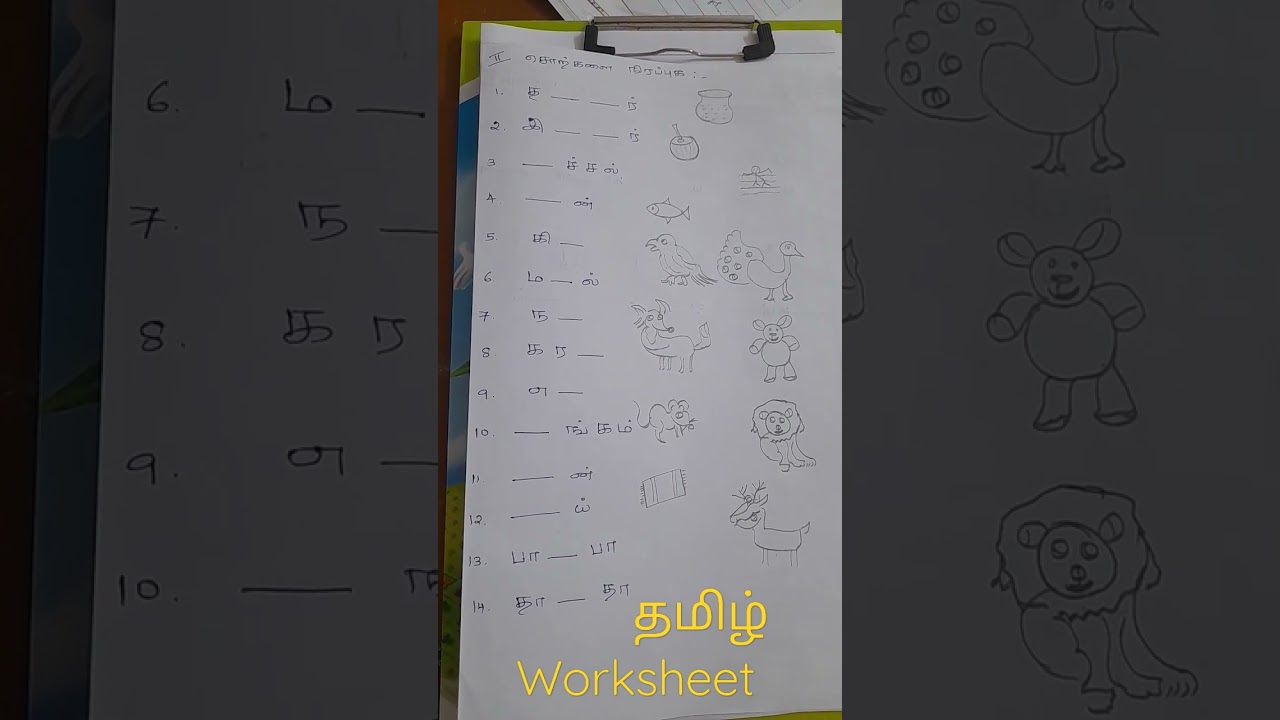 II சொற்களை நிரப்புக :-
1. த __ __ ர்
2. இ __ __ ர்
3 __ ச்சல்.
4. __ ன்
5. கி __
6 ம __ ல்
7. ந __
8. க ர __
9. எ __
10. __ ங்கம்
11 __ ன்
12. __ ய்
13. பா __ பா
14. தா __ தா
தமிழ்
Worksheet